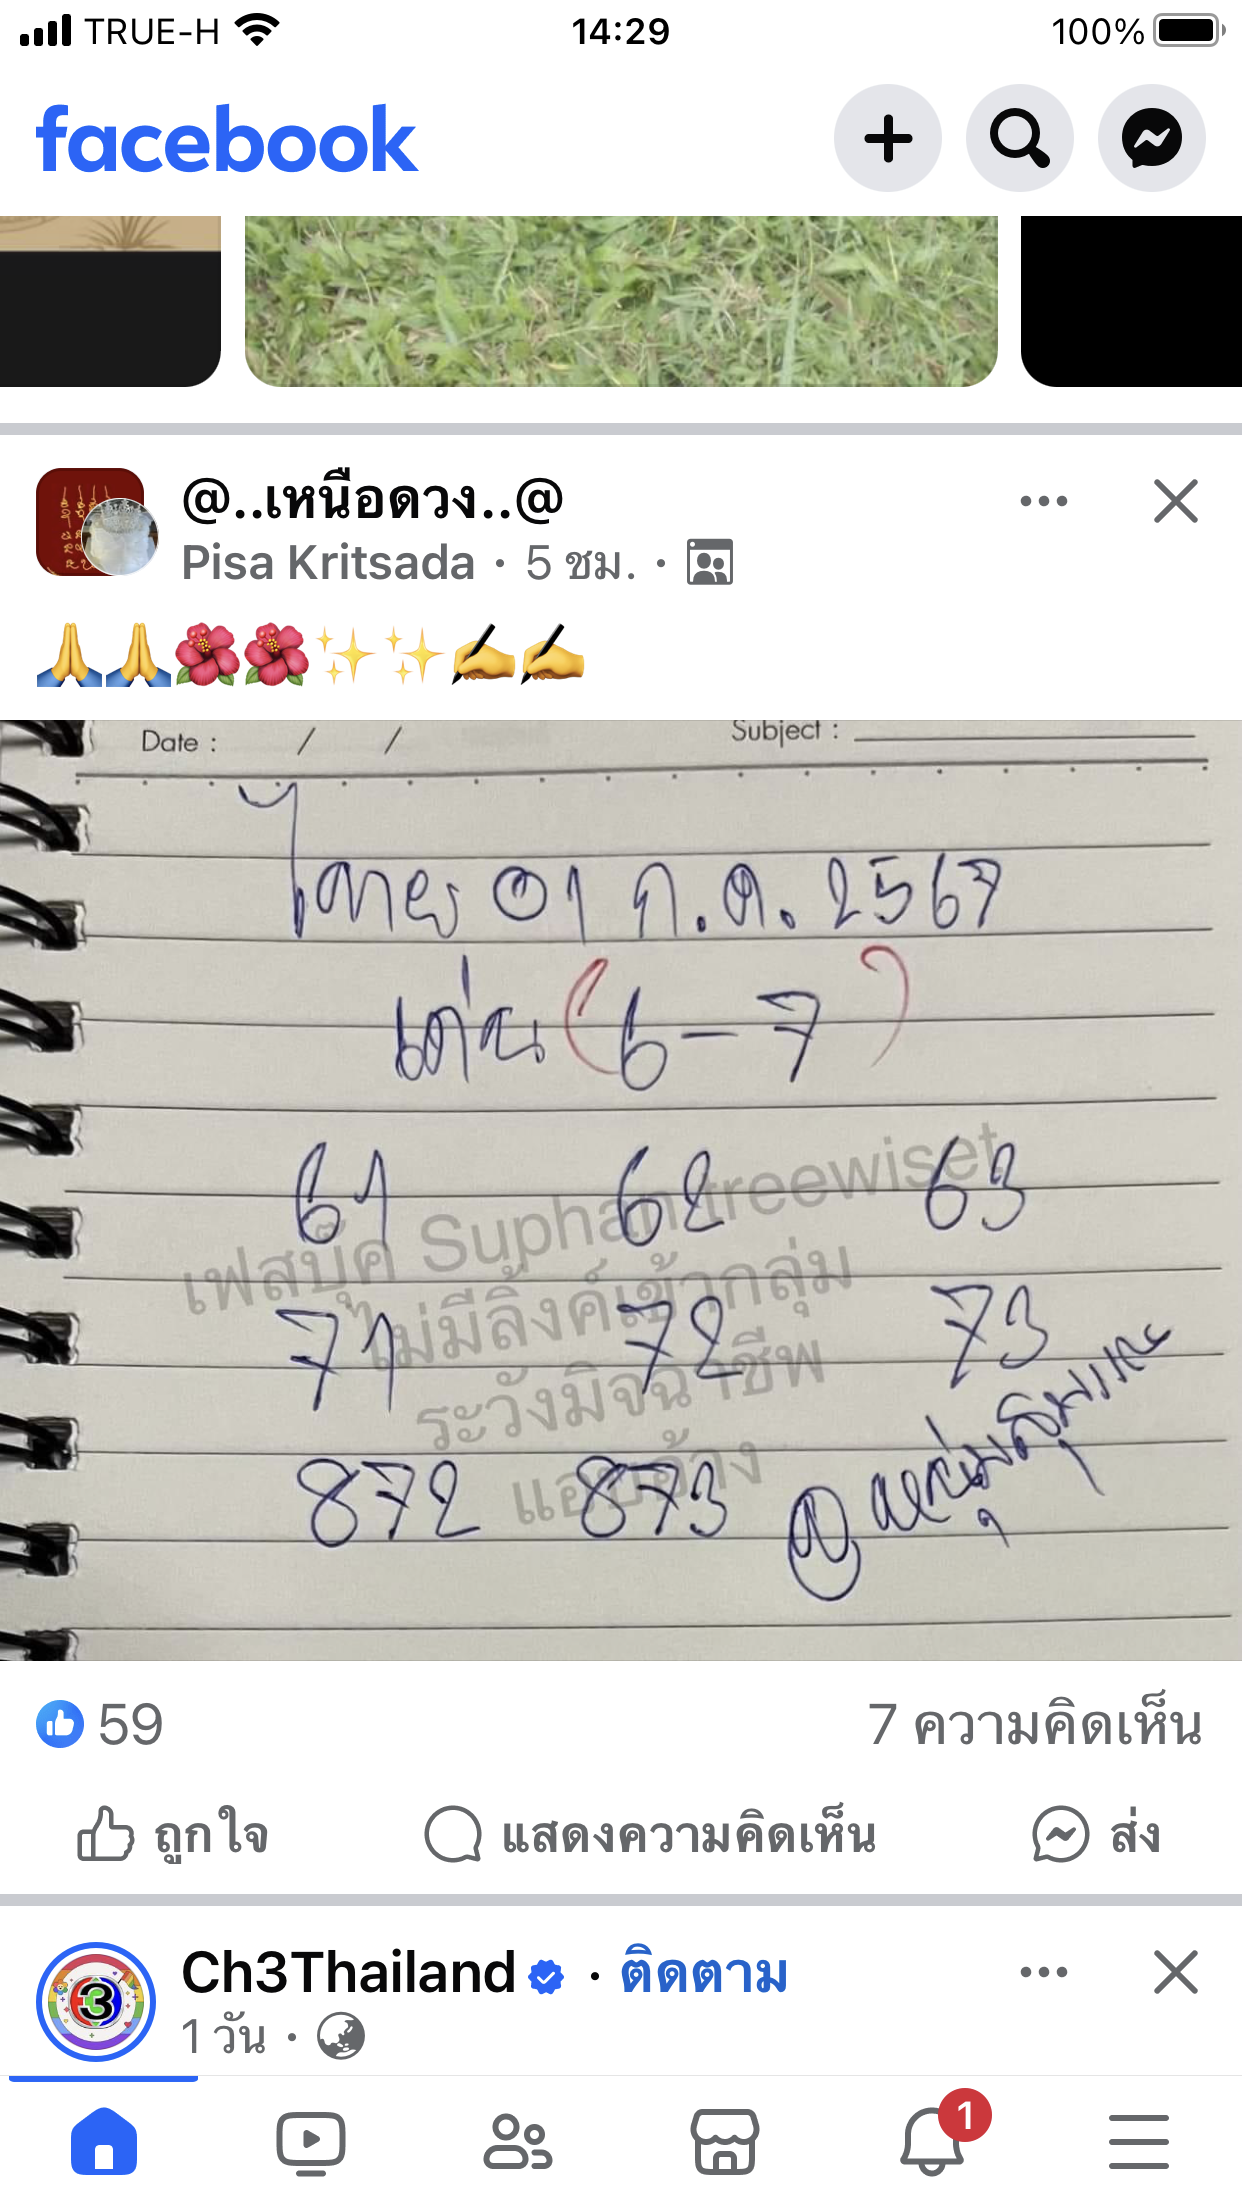 TRUE-H 14:29 100%
facebook
@..เหนือดวง..@
Pisa Kritsada · 5 ชม. ·
Date : / / Subject :
01 ก.ค. 2567
เด่น (6-7)
61 62 63
71 72 73
872 873
เฟสบุ๊ค Suphan treewiset
ไม่มีลิ้งค์เข้ากลุ่ม
ระวังมิจฉาชีพ
แอบอ้าง
59 7 ความคิดเห็น
ถูกใจ แสดงความคิดเห็น ส่ง
Ch3Thailand · ติดตาม
1 วัน ·
3
1